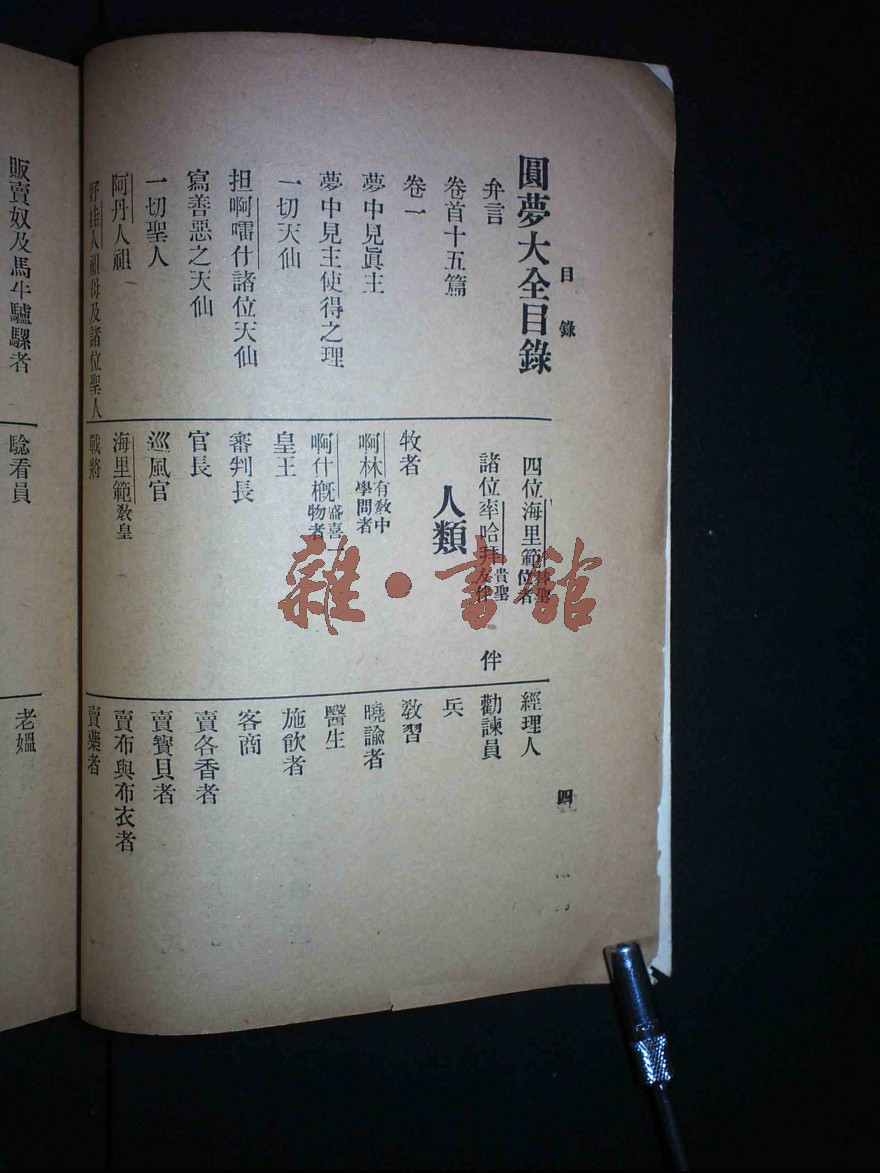 目錄
四
圓夢大全目錄
弁言
卷首十五篇
卷一
夢中見眞主
夢中見主使得之理
一切天仙
担啊嚅什諸位天仙
寫善惡之天仙
一切聖人
阿丹人祖
好娃人祖母及諸位聖人
四位海里範替聖位者
諸位率哈拜貴聖友伴
伴
人類
牧者
啊林有教中學問者
啊什概盛喜一物者
皇王
審判長
官長
巡風官
海里範教皇
戰將
經理人
勸諫員
兵
教習
曉諭者
醫生
施飲者
客商
賣各香者
賣寳貝者
賣布與布衣者
賣藥者
販賣奴及馬牛驢騾者
騐看員
老媼
雜·書館